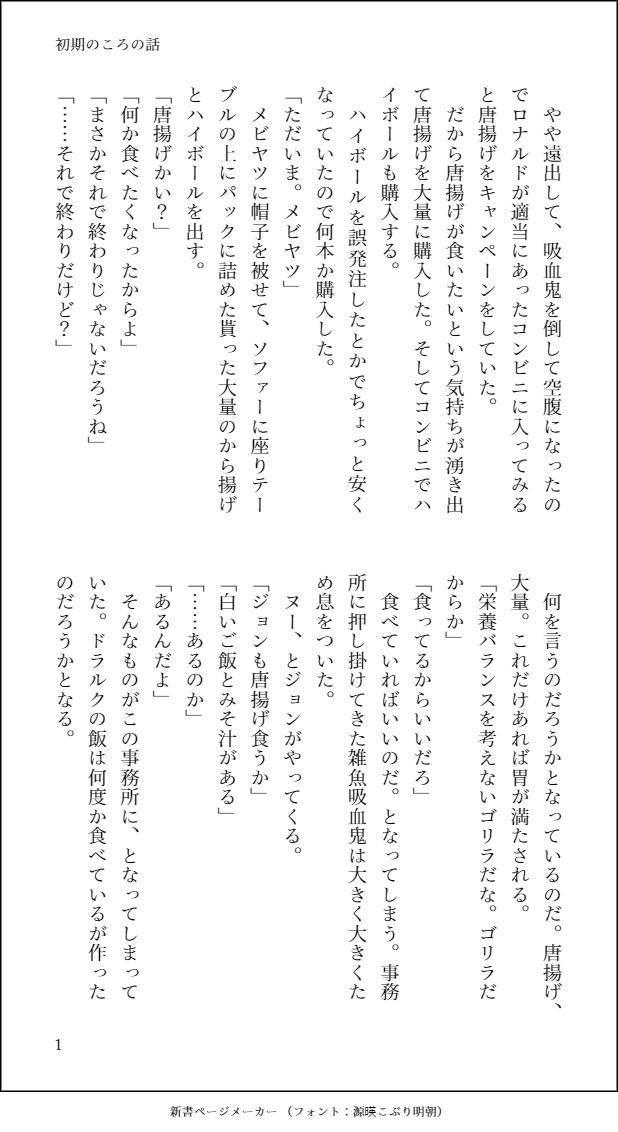 初期のころの話
　やや遠出して、吸血鬼を倒して空腹になったの
でロナルドが適当にあったコンビニに入ってみる
と唐揚げをキャンペーンをしていた。
　だから唐揚げが食いたいという気持ちが湧き出
て唐揚げを大量に購入した。そしてコンビニでハ
イボールも購入する。
　ハイボールを誤発注したとかでちょっと安く
なっていたので何本か購入した。
「ただいま。メビヤツ」
　メビヤツに帽子を被せて、ソファーに座りテー
ブルの上にパックに詰めた貰った大量のから揚げ
とハイボールを出す。
「唐揚げかい？」
「何か食べたくなったからよ」
「まさかそれで終わりじゃないだろうね」
「……それで終わりだけど？」
　何を言うのだろうかとなっているのだ。唐揚げ、
大量。これだけあれば胃が満たされる。
「栄養バランスを考えないゴリラだな。ゴリラだ
からか」
「食ってるからいいだろ」
　食べていればいいのだ。となってしまう。事務
所に押し掛けてきた雑魚吸血鬼は大きく大きくた
め息をついた。
　ヌー、とジョンがやってくる。
「ジョンも唐揚げ食うか」
「白いご飯とみそ汁がある」
「……あるのか」
「あるんだよ」
　そんなものがこの事務所に、となってしまって
いた。ドラルクの飯は何度か食べているが作った
のだろうかとなる。
1
新書ページメーカー（フォント：源暎こぶり明朝）